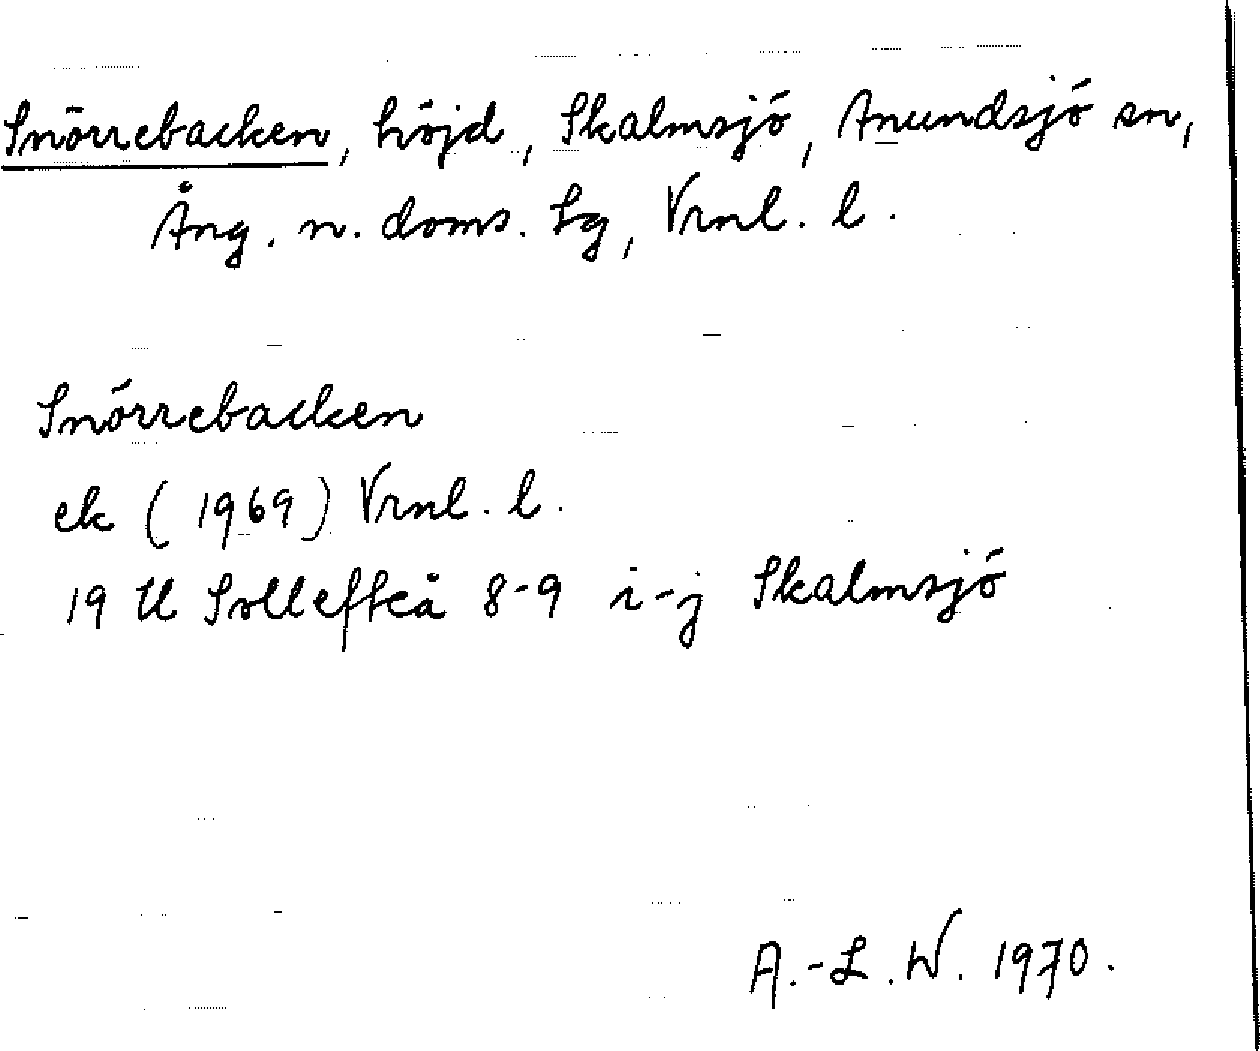 Snörrebacken, höjd, Skalmsjö, Anundsjö sn,
Ång. n. doms. Lg, Vrnl. l.
Snörrebacken
ek (1969) Vrnl. l.
19 H Sollefteå 8-9 i-j Skalmsjö
A.-L. W. 1970.